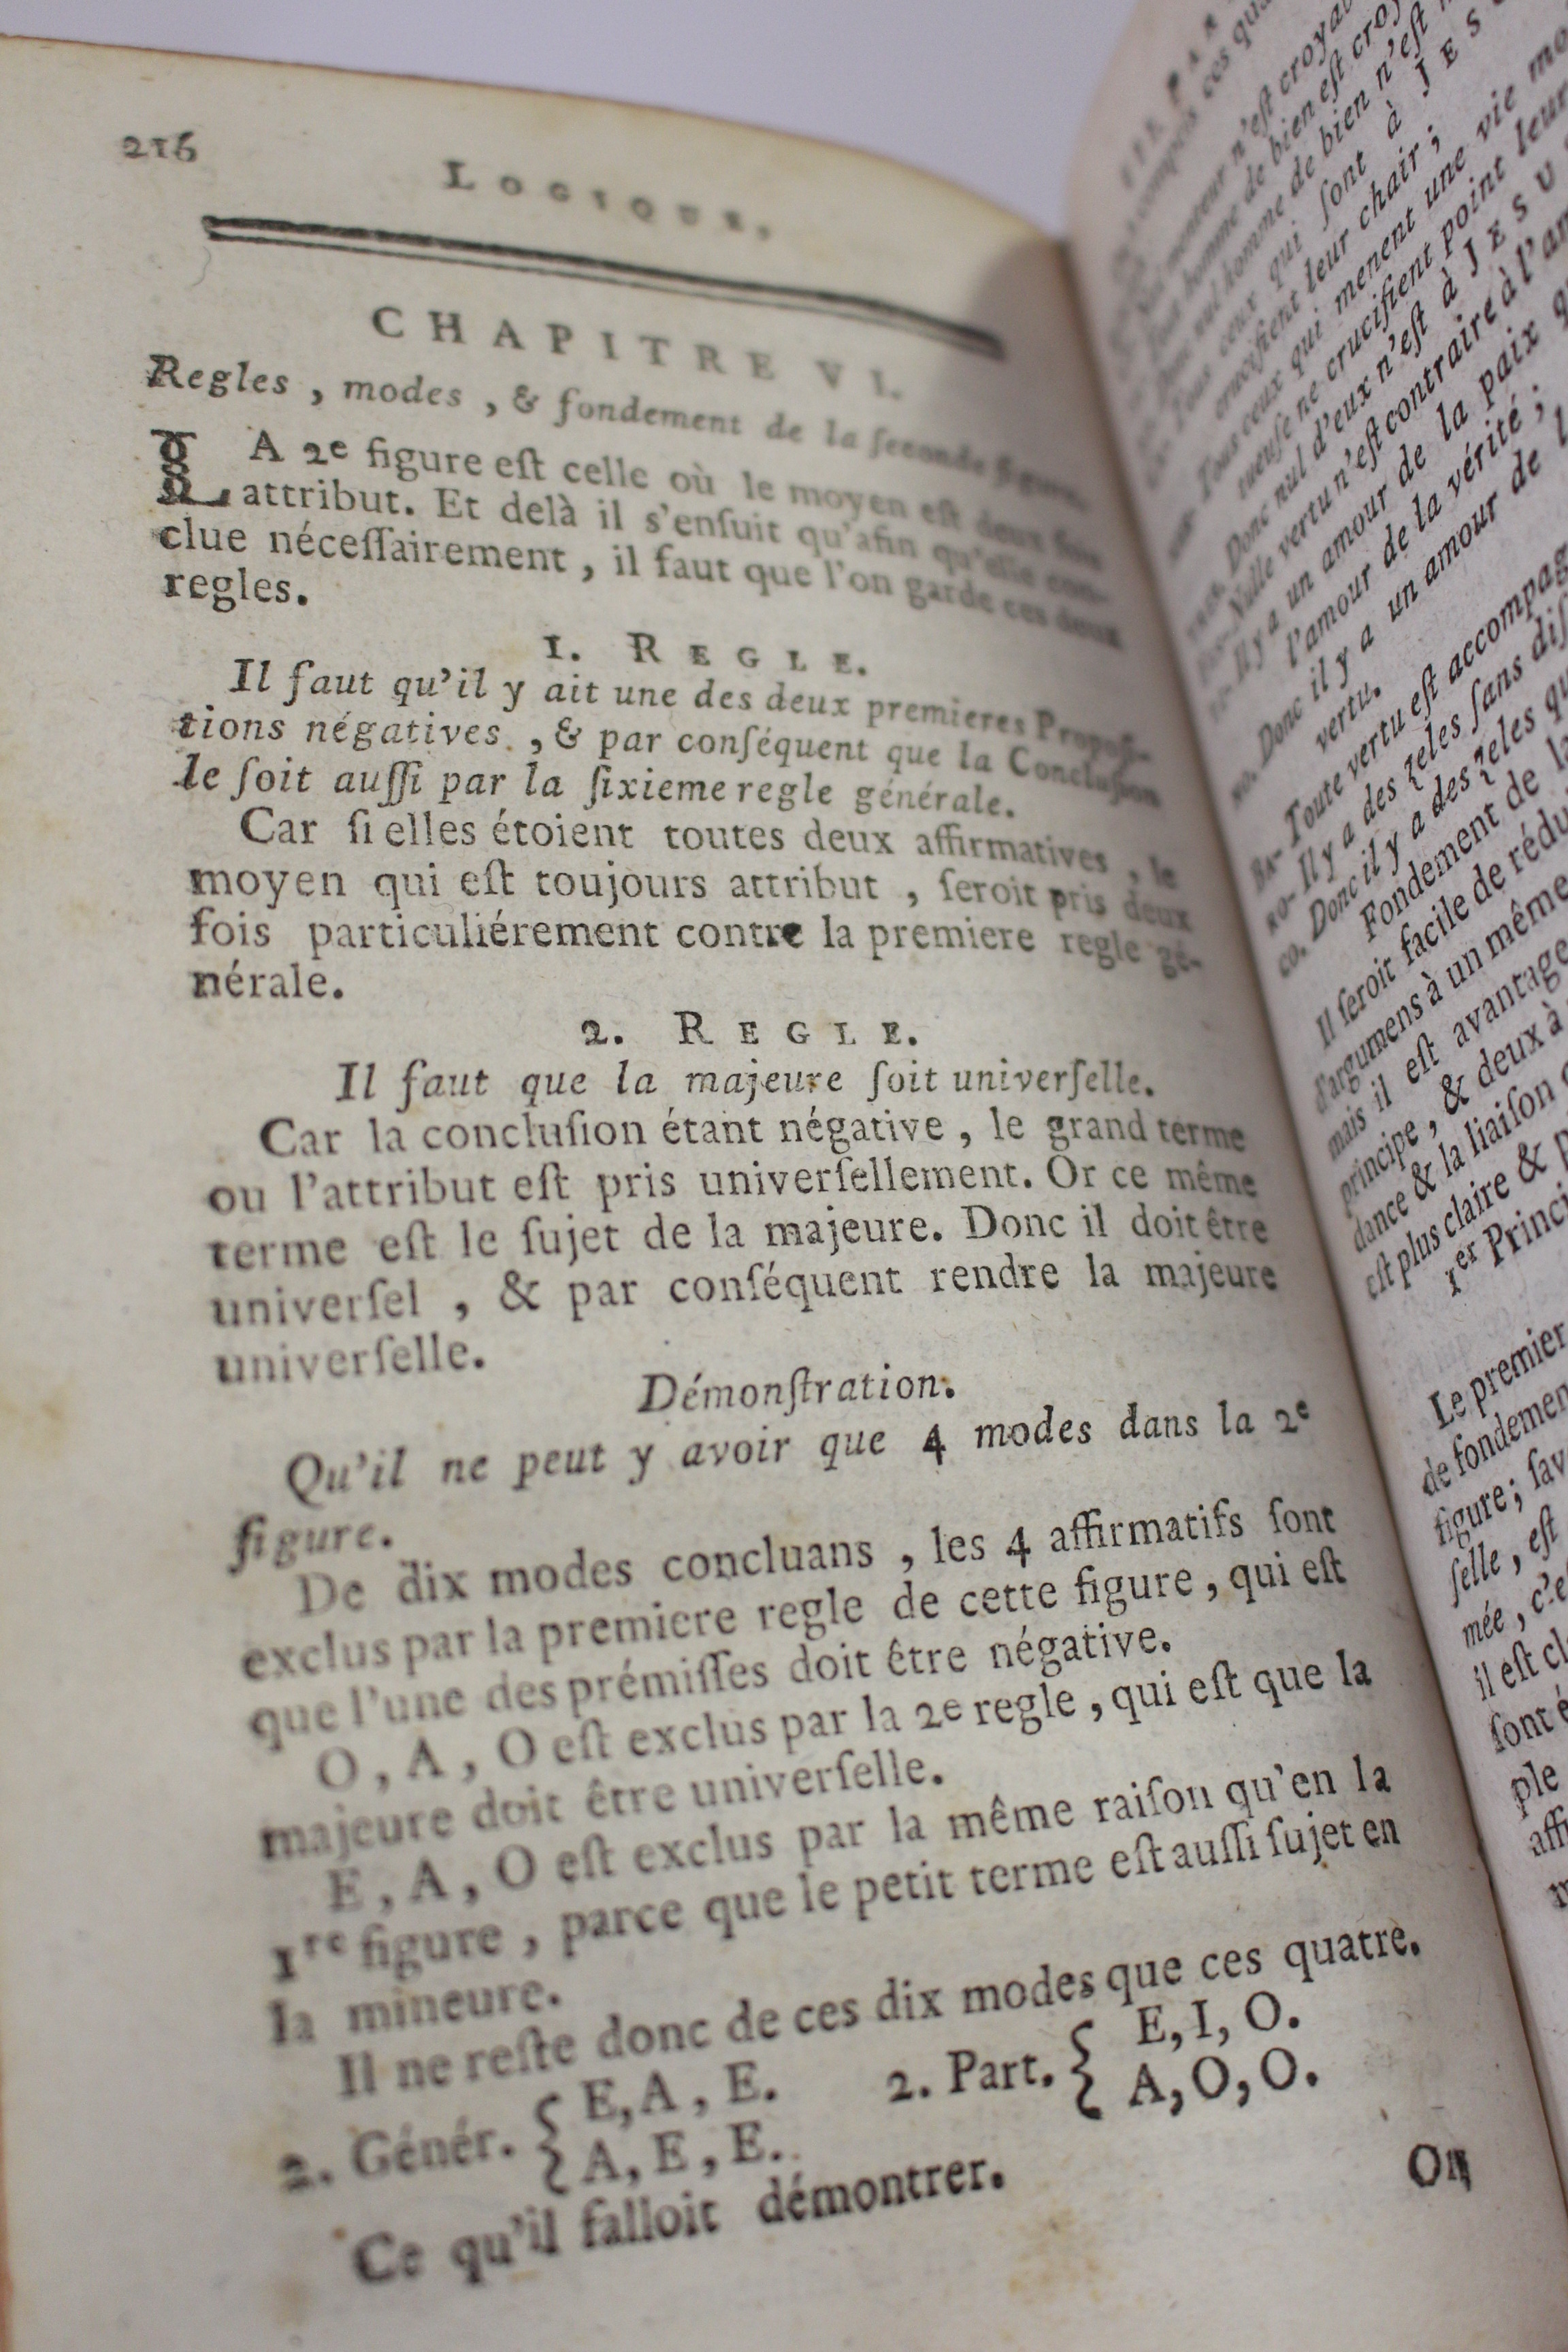 216
LOGIQUE,
CHAPITRE VI.
Regles , modes , & fondement de la ſeconde figure.
LA 2e figure eſt celle où le moyen eſt deux fois
attribut. Et delà il s'enſuit qu'afin qu'elle con-
clue néceſſairement , il faut que l'on garde ces deux
regles.
1. REGLE.
Il faut qu'il y ait une des deux premieres Propoſi-
tions négatives , & par conſéquent que la Concluſion
le ſoit auſſi par la ſixieme regle générale.
Car ſi elles étoient toutes deux affirmatives , le
moyen qui eſt toujours attribut , ſeroit pris deux
fois particuliérement contre la premiere regle gé-
nérale.
2. REGLE.
Il faut que la majeure ſoit univerſelle.
Car la concluſion étant négative , le grand terme
ou l'attribut eſt pris univerſellement. Or ce même
terme eſt le ſujet de la majeure. Donc il doit être
univerſel , & par conſéquent rendre la majeure
univerſelle.
Démonſtration.
Qu'il ne peut y avoir que 4 modes dans la 2e
figure.
De dix modes concluans , les 4 affirmatifs ſont
exclus par la premiere regle de cette figure , qui eſt
que l'une des prémiſſes doit être négative.
O , A , O eſt exclus par la 2e regle , qui eſt que la
majeure doit être univerſelle.
E , A , O eſt exclus par la même raiſon qu'en la
1re figure , parce que le petit terme eſt auſſi ſujet en
la mineure.
Il ne reſte donc de ces dix modes que ces quatre.
2. Génér. { E, A , E. 2. Part. { E, I, O.
A, E , E. A, O, O.
Ce qu'il falloit démontrer.
On
n'eſt croyable
homme de bien eſt croy
homme de bien n'eſt
ceux qui ſont à JES
crucifient leur chair ;
Tous ceux qui menent une vie mo
tueuſe ne crucifient point leur
Donc nul d'eux n'eſt à JESU
Nulle vertu n'eſt contraire à l'am
Il y a un amour de la paix q
l'amour de la vérité ;
Donc il y a un amour de l
vertu.
BA- Toute vertu eſt accompag
RO- Il y a des zeles ſans diſ
CO. Donc il y a des zeles qu
Fondement de la
Il ſeroit facile de rédu
d'argumens à un même
mais il eſt avantage
principe , & deux à
dance & la liaiſon
eſt plus claire & p
1er Princi
Le premier
de fondemen
figure ; ſav
ſelle , eſt
mée , c'e
il eſt cl
ſont é
ple
aff